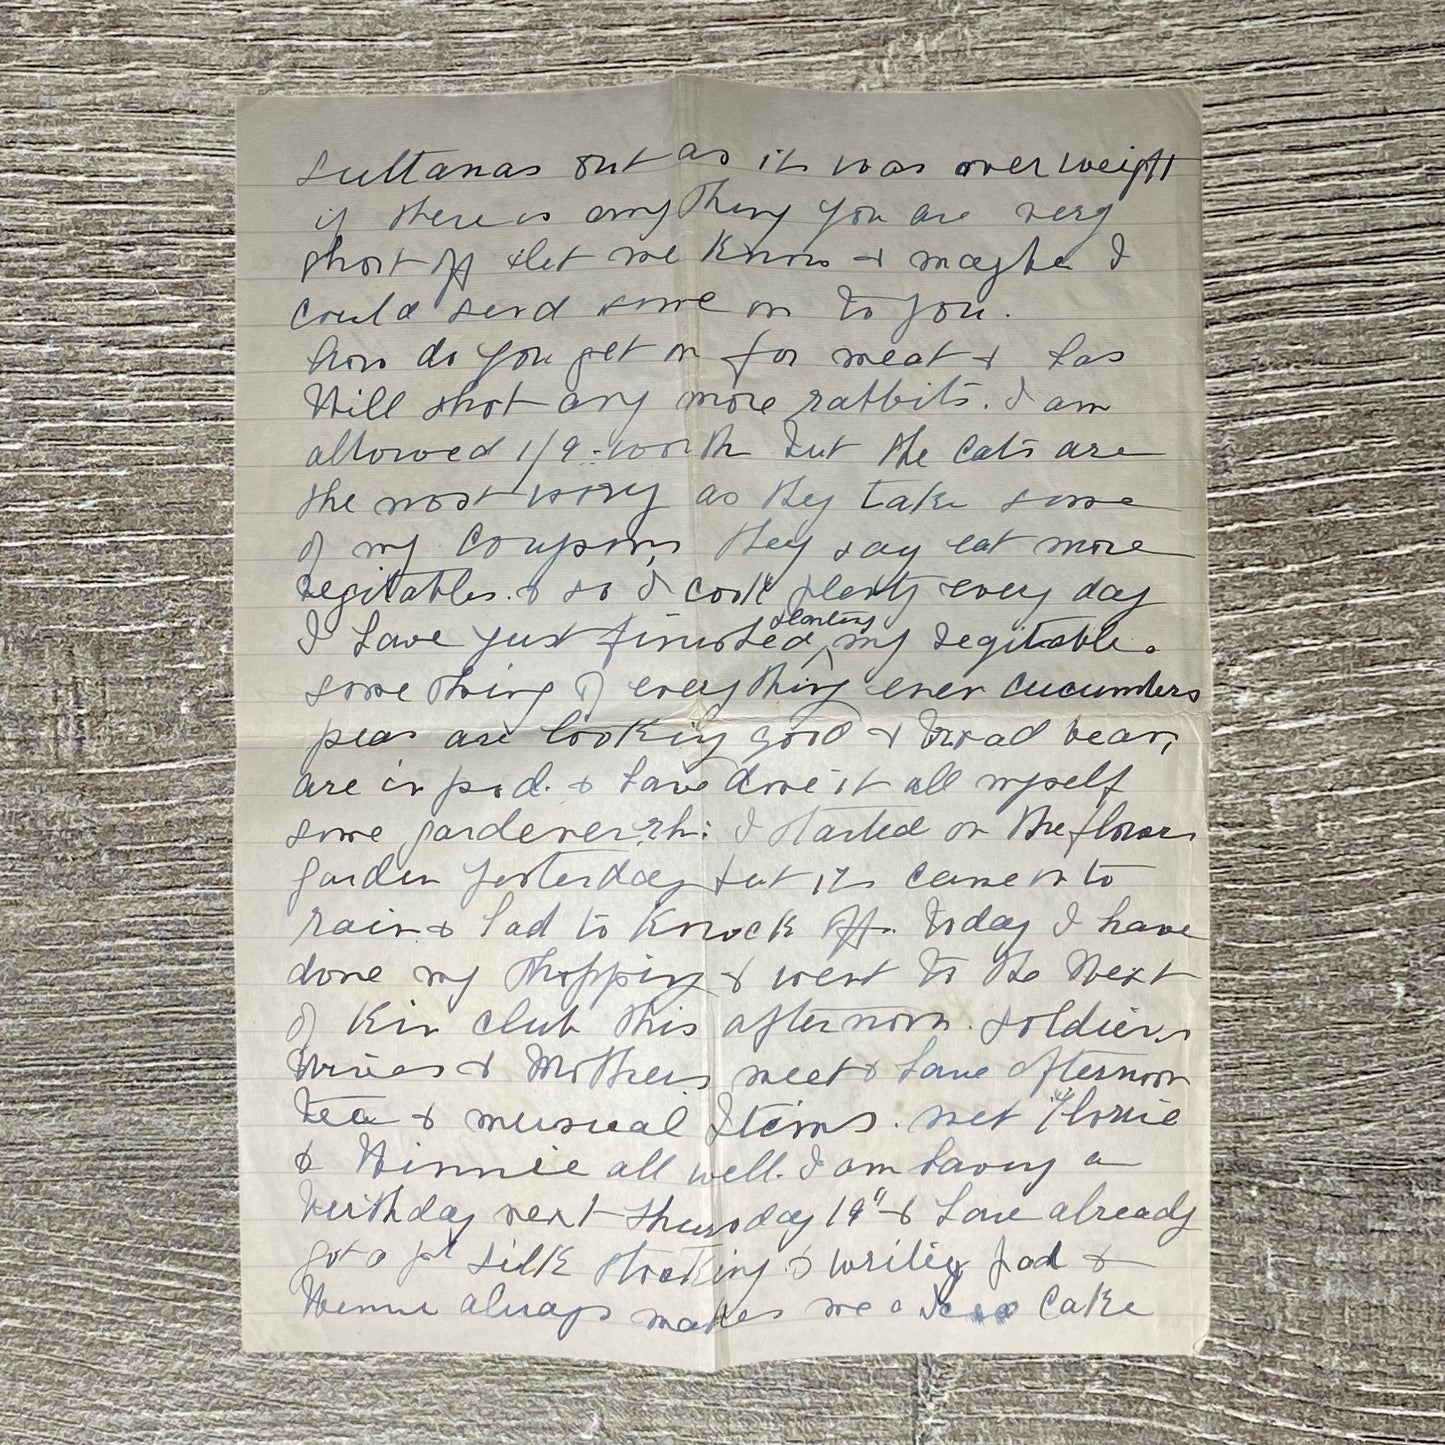 Sultanas out as it was over weight
if there is any thing you are very
short off let me know & maybe I
could send some on to you.
how do you get on for meat & has
Will shot any more rabbits. I am
allowed 1/9 worth but the cats are
the most worry as they take some
of my coupons, they say eat more
vegitables. & so I cook plenty every day
I have just finished planting my vegitable.
some thing of everything even cucumbers
peas are looking good & broad beans
are in pod. & have done it all myself
some gardener eh: I started on the flower
garden yesterday but it came on to
rain & had to knock off. today I have
done my shopping & went to the Next
of Kin club this afternoon. soldiers
Wives & Mothers meet & have afternoon
tea & musical Items. met Florie
& Winnie all well. I am having a
birthday next Thursday 19" & have already
got a pr silk stocking & writing pad &
Winnie always makes me a cake